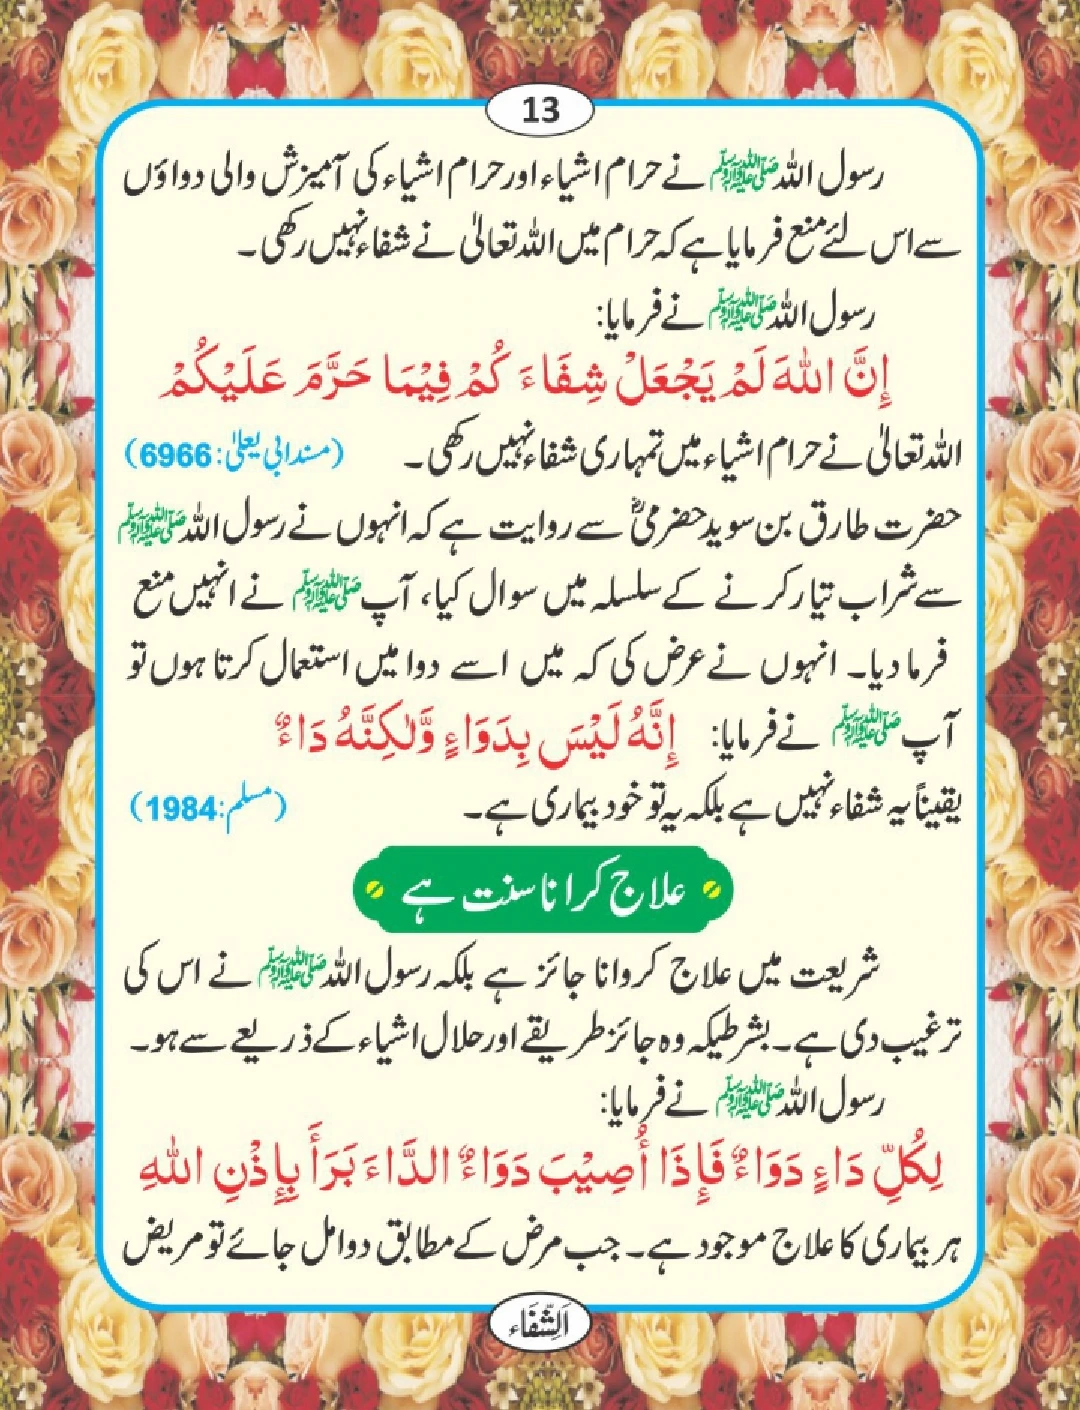 13
رسول اللہ ﷺ نے حرام اشیاء اور حرام اشیاء کی آمیزش والی دواؤں
سے اس لئے منع فرمایا ہے کہ حرام میں اللہ تعالیٰ نے شفاء نہیں رکھی۔
رسول اللہ ﷺ نے فرمایا:
اِنَّ اللّٰهَ لَمْ يَجْعَلْ شِفَاءَ كُمْ فِيْمَا حَرَّمَ عَلَيْكُمْ
اللہ تعالیٰ نے حرام اشیاء میں تمہاری شفاء نہیں رکھی۔ (مسند ابی یعلیٰ: 6966)
حضرت طارق بن سوید حضرمیؓ سے روایت ہے کہ انہوں نے رسول اللہ ﷺ
سے شراب تیار کرنے کے سلسلہ میں سوال کیا، آپ ﷺ نے انہیں منع
فرما دیا۔ انہوں نے عرض کی کہ میں اسے دوا میں استعمال کرتا ہوں تو
آپ ﷺ نے فرمایا: اِنَّهُ لَيْسَ بِدَوَاءٍ وَّلٰكِنَّهُ دَاءٌ
یقیناً یہ شفاء نہیں ہے بلکہ یہ تو خود بیماری ہے۔ (مسلم: 1984)
علاج کرانا سنت ہے
شریعت میں علاج کروانا جائز ہے بلکہ رسول اللہ ﷺ نے اس کی
ترغیب دی ہے۔ بشرطیکہ وہ جائز طریقے اور حلال اشیاء کے ذریعے سے ہو۔
رسول اللہ ﷺ نے فرمایا:
لِكُلِّ دَاءٍ دَوَاءٌ فَاِذَا أُصِيْبَ دَوَاءٌ الدَّاءَ بَرَأَ بِاِذْنِ اللّٰهِ
ہر بیماری کا علاج موجود ہے۔ جب مرض کے مطابق دوا مل جائے تو مریض
اَلشِّفَاء